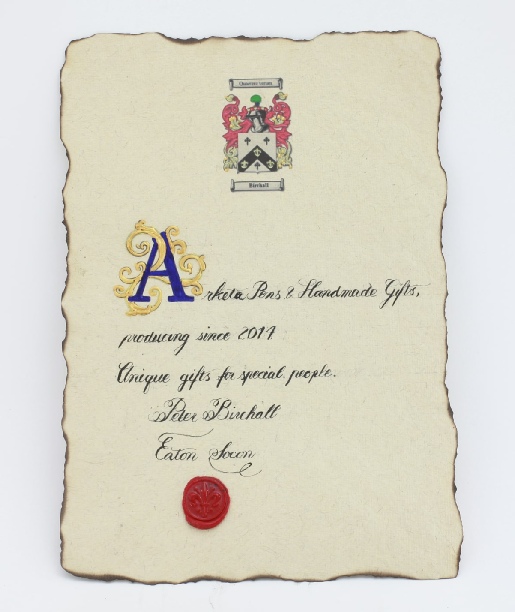 Birchall
Arketa Pens & Handmade Gifts,
producing since 2011
Unique gifts for special people.
Peter Birchall
Eaton Socon